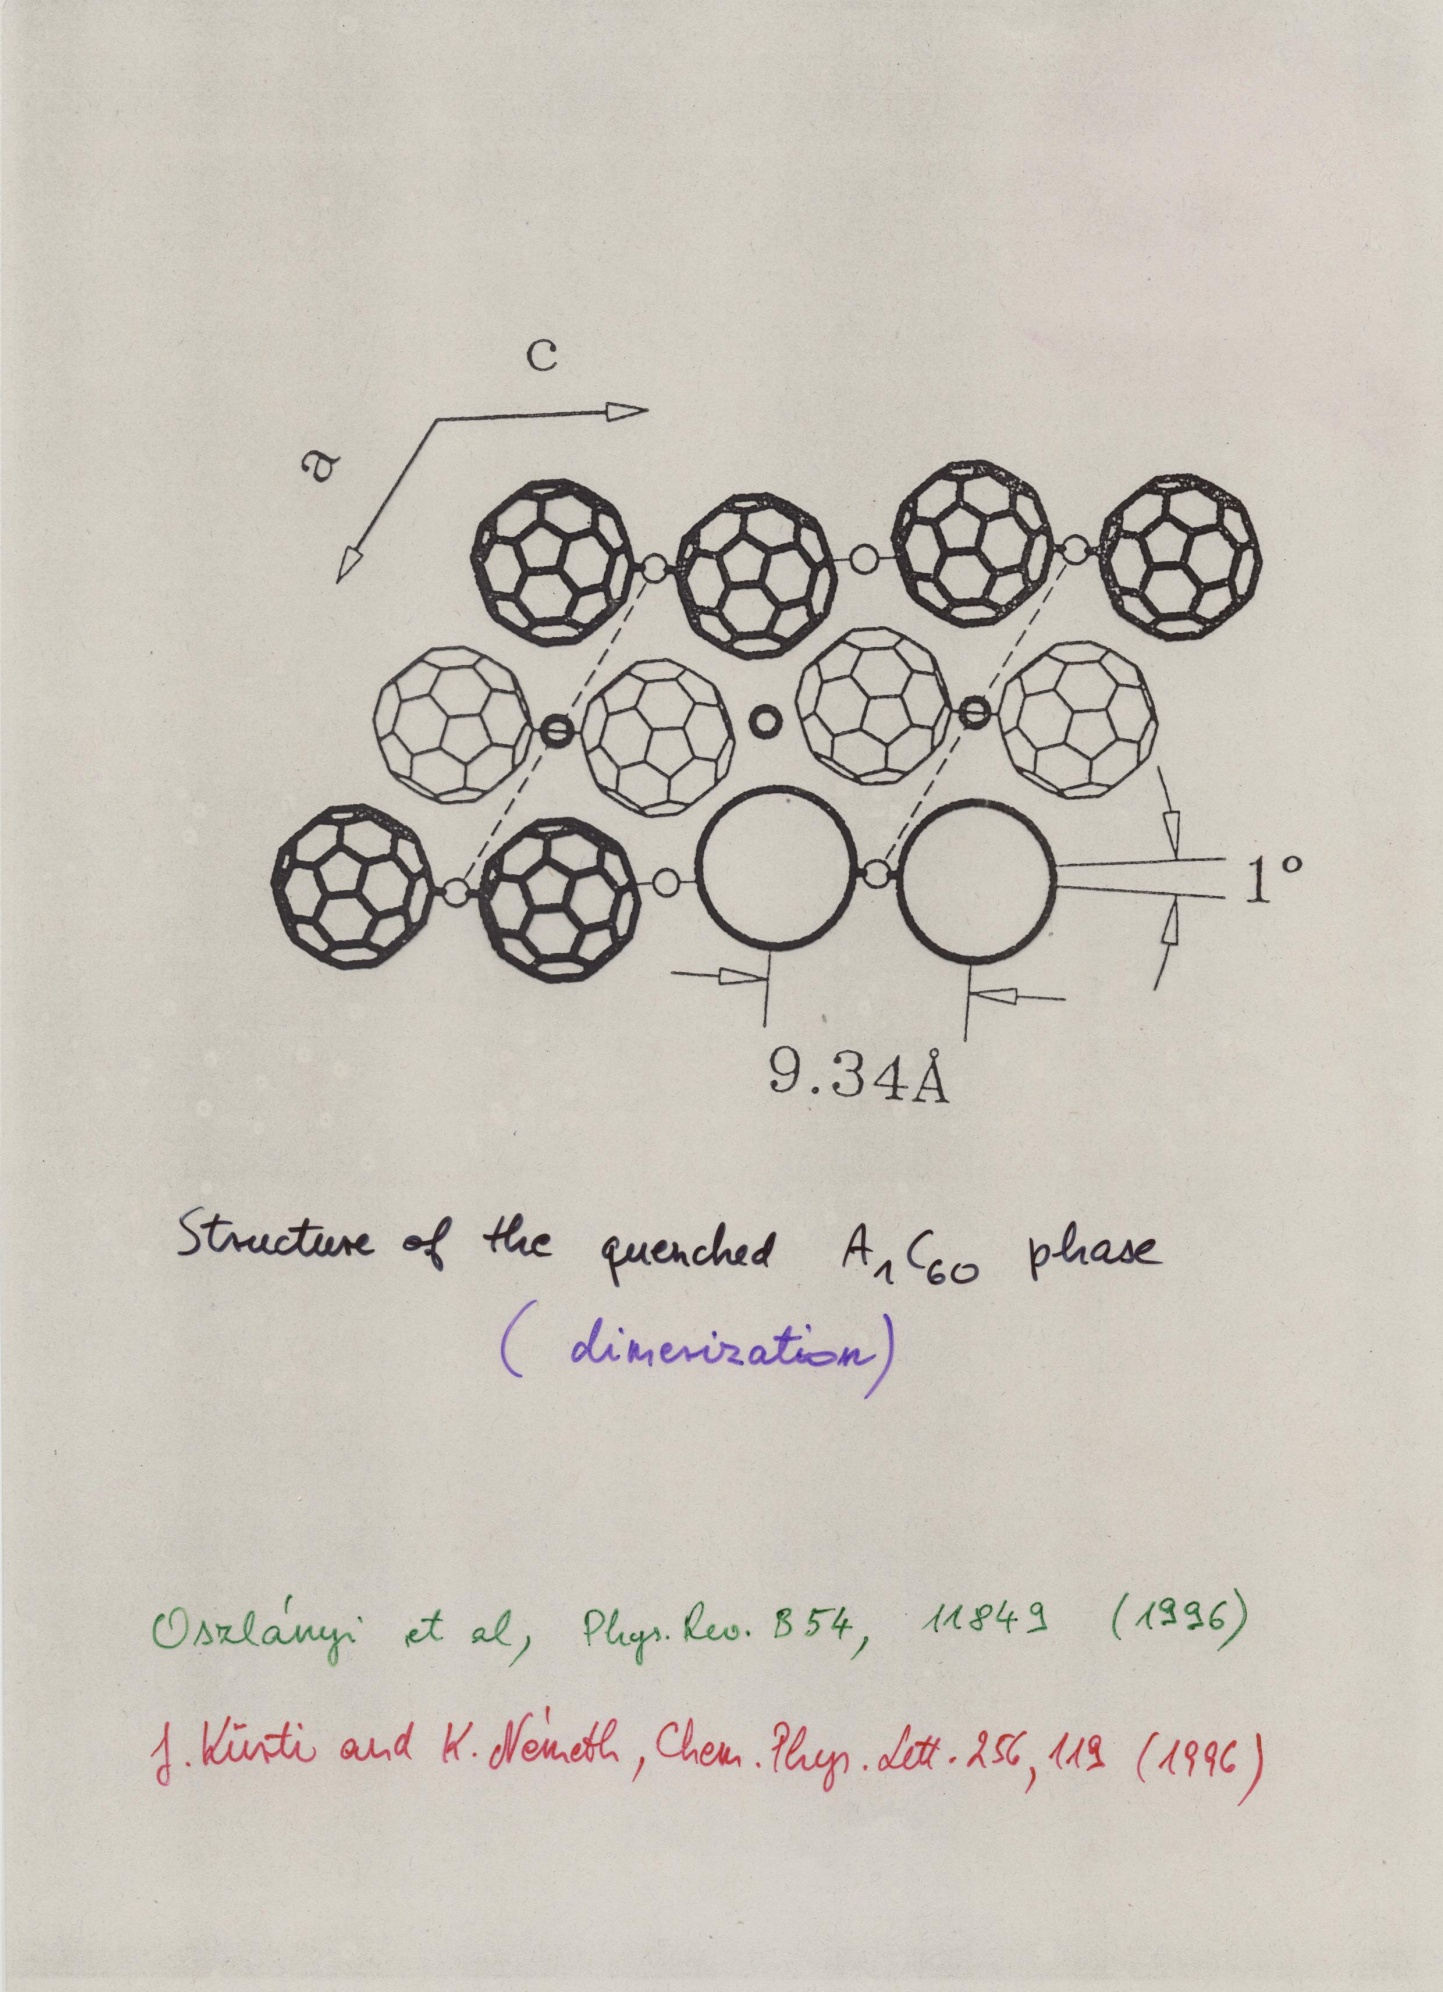 c
a
1°
9.34Å
Structure of the quenched A₁C₆₀ phase
( dimerization)
Oszlányi et al, Phys. Rev. B 54, 11849 (1996)
J. Kürti and K. Németh, Chem. Phys. Lett. 256, 119 (1996)